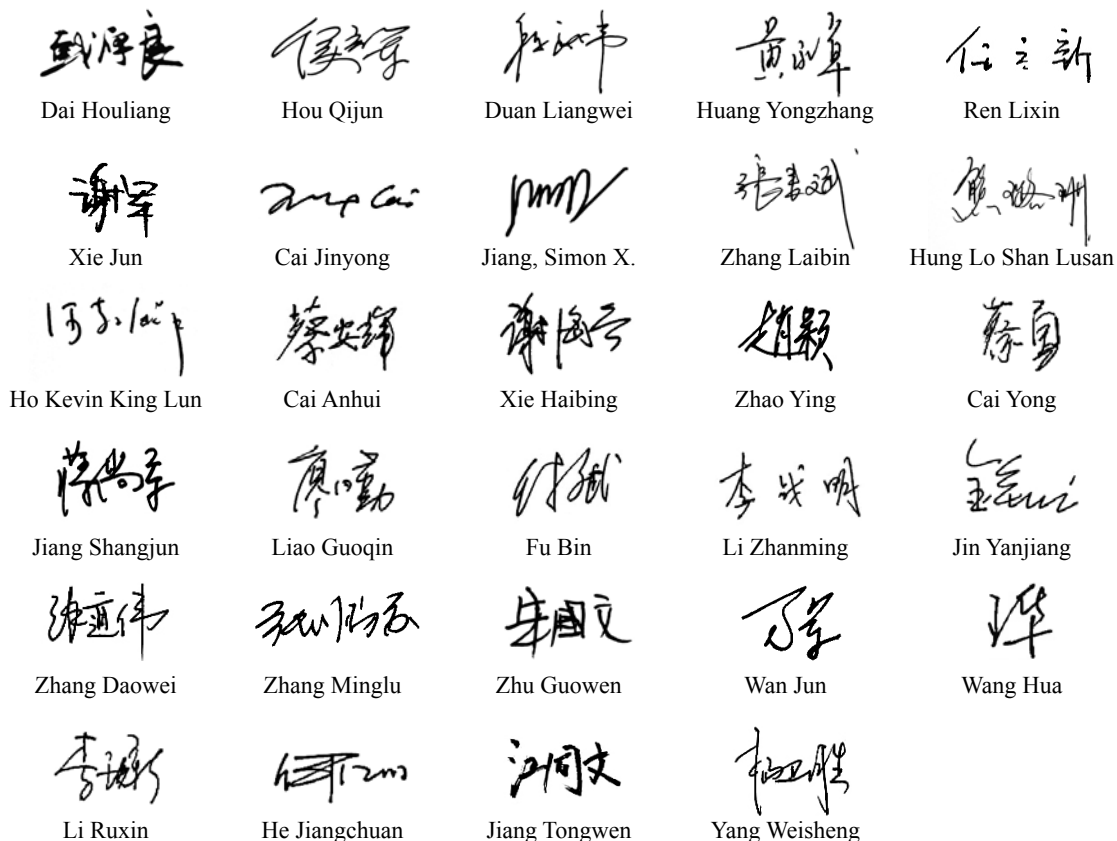 戴厚良 侯启军 段良伟 黄永章 任立新
Dai Houliang Hou Qijun Duan Liangwei Huang Yongzhang Ren Lixin
谢军 Cai
Xie Jun Cai Jinyong Jiang, Simon X. Zhang Laibin Hung Lo Shan Lusan
蔡安辉 谢海兵 赵颖 蔡勇
Ho Kevin King Lun Cai Anhui Xie Haibing Zhao Ying Cai Yong
蒋尚军 付斌 李战明
Jiang Shangjun Liao Guoqin Fu Bin Li Zhanming Jin Yanjiang
张道伟 朱国文 万军 王华
Zhang Daowei Zhang Minglu Zhu Guowen Wan Jun Wang Hua
江同文 杨卫胜
Li Ruxin He Jiangchuan Jiang Tongwen Yang Weisheng